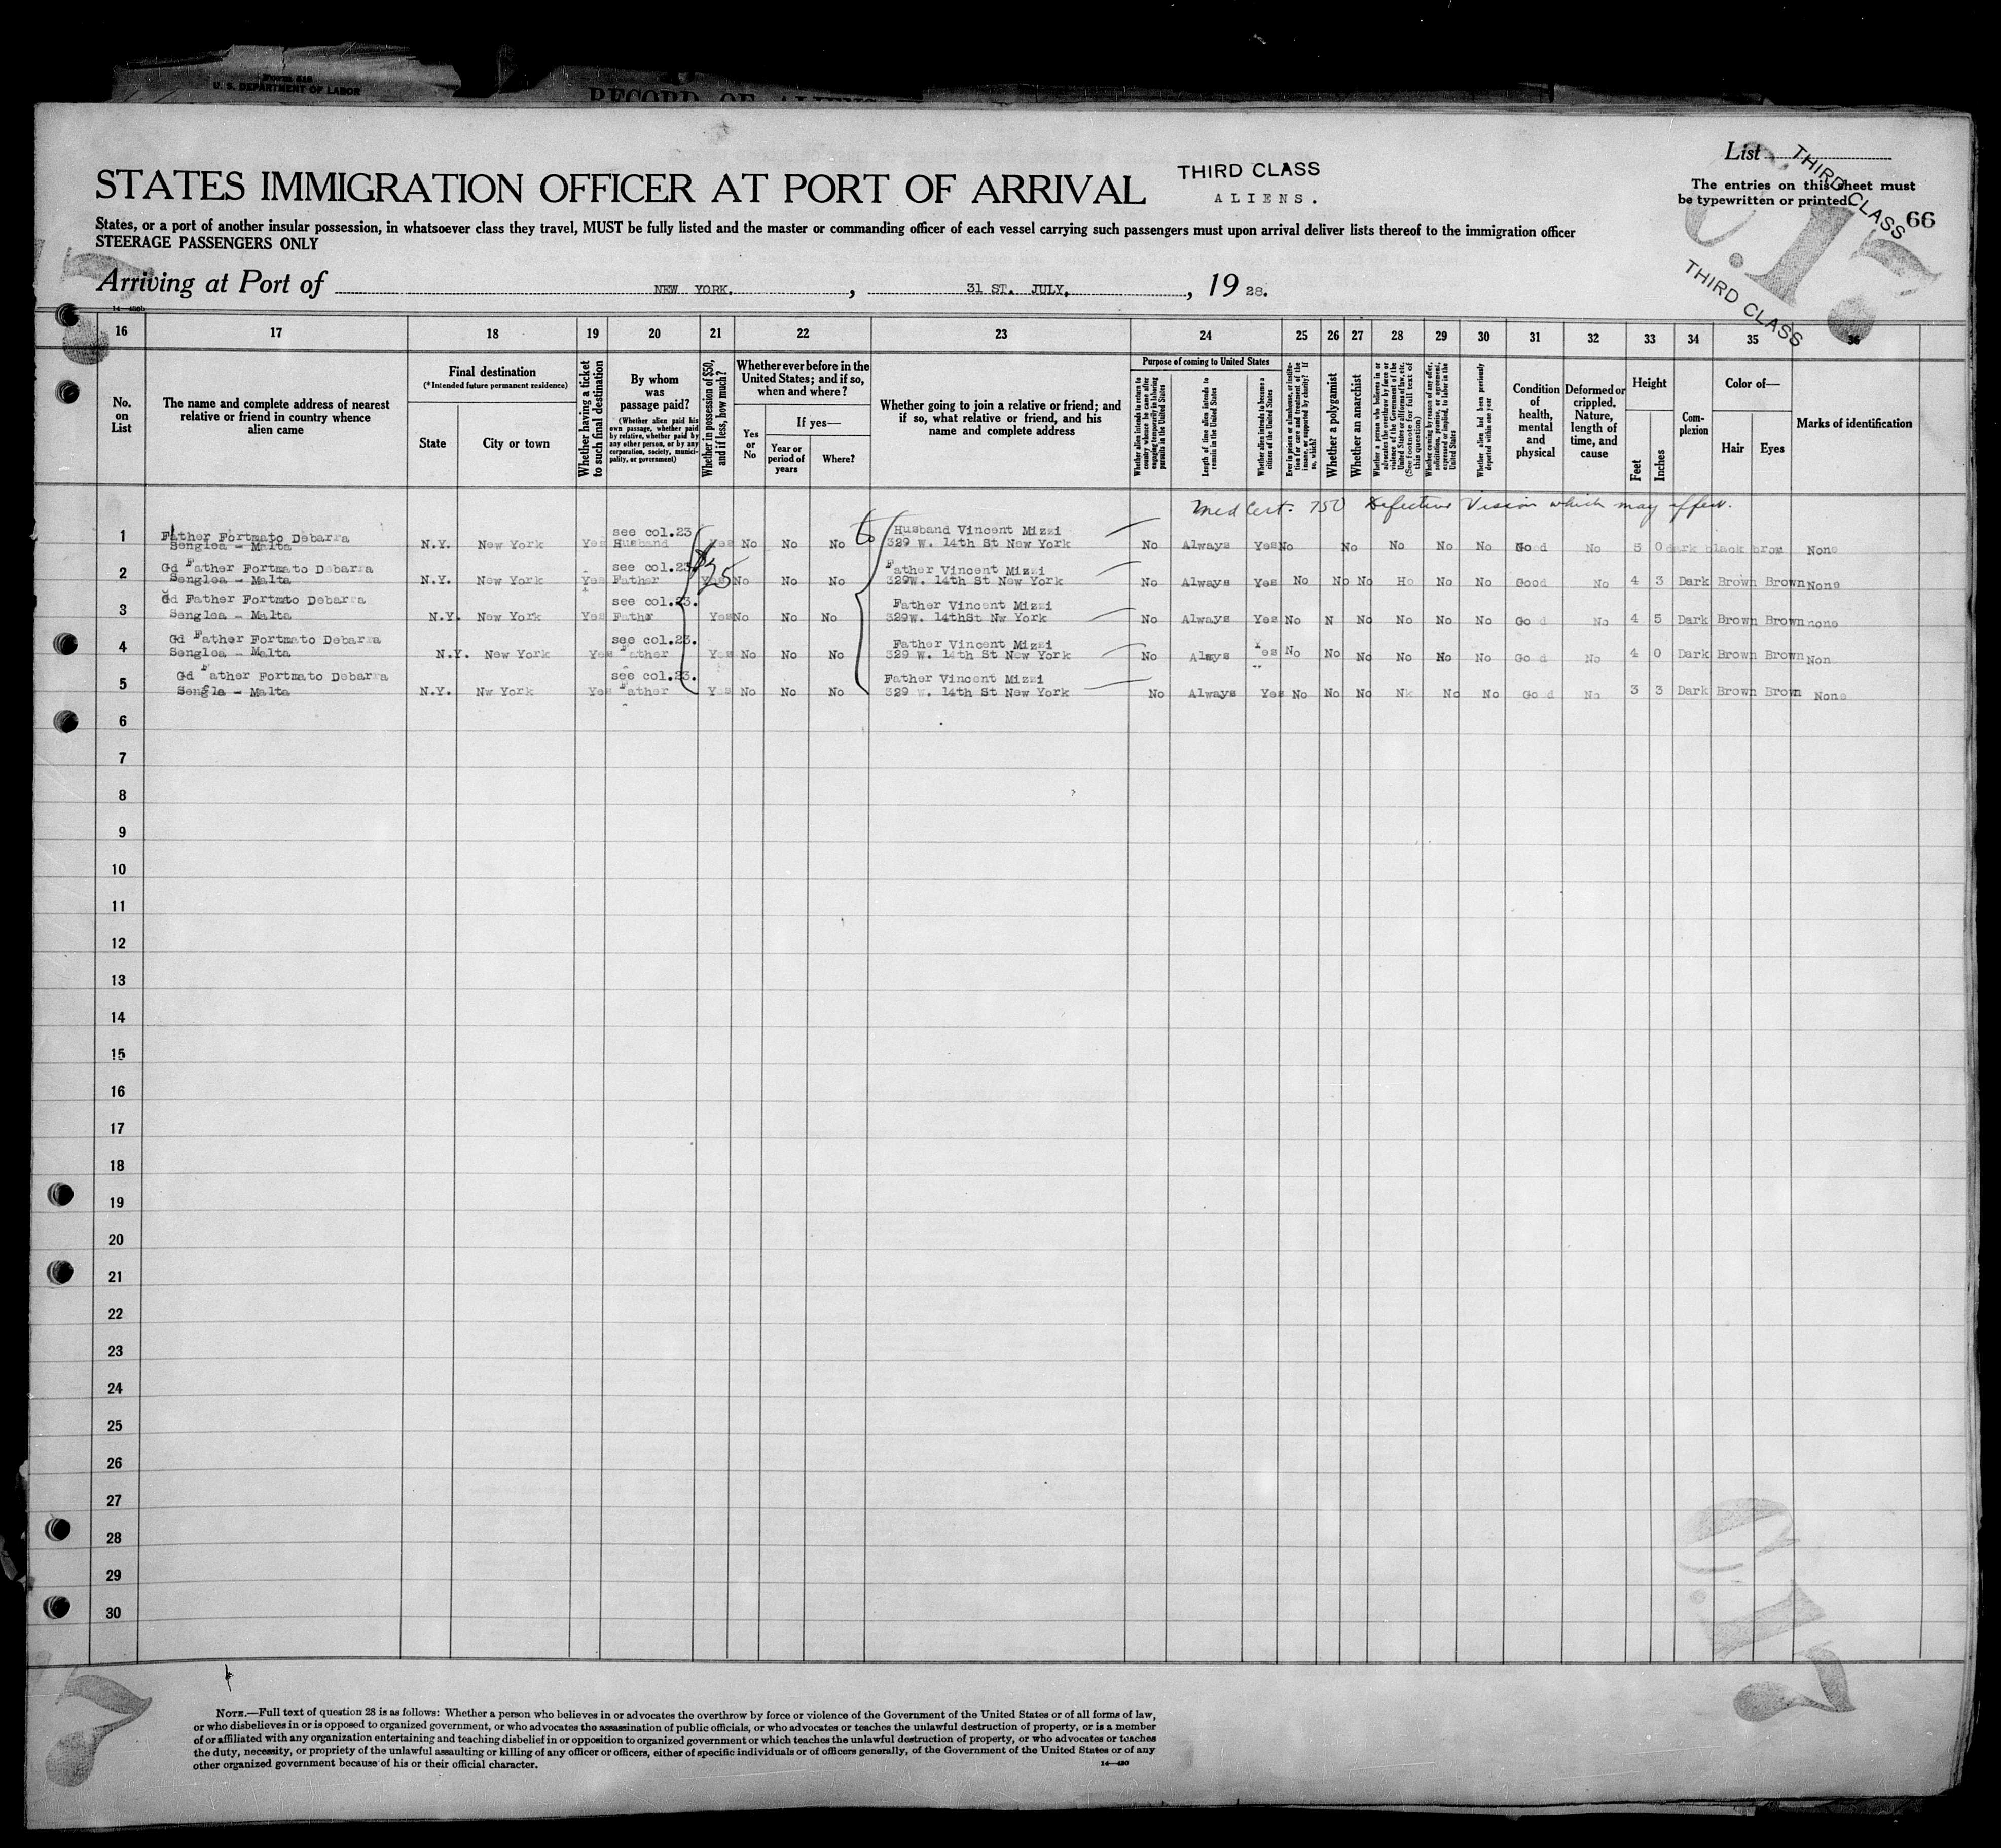 Form 810
U. S. DEPARTMENT OF LABOR
RECORD OF ALIENS
List
THIRD CLASS
STATES IMMIGRATION OFFICER AT PORT OF ARRIVAL
THIRD CLASS
ALIENS.
The entries on this sheet must
be typewritten or printed.
66
States, or a port of another insular possession, in whatsoever class they travel, MUST be fully listed and the master or commanding officer of each vessel carrying such passengers must upon arrival deliver lists thereof to the immigration officer
STEERAGE PASSENGERS ONLY
THIRD CLASS
Arriving at Port of NEW YORK. , 31 ST. JULY, , 19 28.
14—430b
16 17 18 19 20 21 22 23 24 25 26 27 28 29 30 31 32 33 34 35 36
No. on List
The name and complete address of nearest relative or friend in country whence alien came
Final destination
(*Intended future permanent residence)
State
City or town
Whether having a ticket to such final destination
By whom was passage paid?
(Whether alien paid his own passage, whether paid by relative, whether paid by any other person, or by any corporation, society, municipality, or government)
Whether in possession of $50, and if less, how much?
Whether ever before in the United States; and if so, when and where?
Yes or No
If yes—
Year or period of years
Where?
Whether going to join a relative or friend; and if so, what relative or friend, and his name and complete address
Purpose of coming to United States
Whether alien intends to return to country whence he came after engaging temporarily in laboring pursuits in the United States
Length of time alien intends to remain in the United States
Whether alien intends to become a citizen of the United States
Ever in prison or almshouse, or institution for care and treatment of the insane, or supported by charity? If so, which?
Whether a polygamist
Whether an anarchist
Whether a person who believes in or advocates the overthrow by force or violence of the Government of the United States or all forms of law, etc. (See footnote for full text of this question)
Whether coming by reason of any offer, solicitation, promise, or agreement, expressed or implied, to labor in the United States
Whether alien had been previously deported within one year
Condition of health, mental and physical
Deformed or crippled. Nature, length of time, and cause
Height
Feet
Inches
Complexion
Color of—
Hair
Eyes
Marks of identification
Med Cert. 750 Defective Vision which may affect.
1 Father Fortmato Debarra see col.23 Husband Vincent Mizzi
Senglea - Malta N.Y. New York Yes Husband Yes No No No 329 W. 14th St New York No Always Yes No No No No No Good No 5 0 dark black brow None
$35
2 Gd Father Fortmato Debarra see col.23. Father Vincent Mizzi
Senglea - Malta N.Y. New York Yes Father Yes No No No 329W. 14th St New York No Always Yes No No No Ho No No Good No 4 3 Dark Brown Brown None
3 Gd Father Fortmto Debarra see col.23. Father Vincent Mizzi
Senglea - Malta N.Y. New York Yes Fathr Yes No No No 329W. 14thSt Nw York No Always Yes No N No No No No Go d No 4 5 Dark Brown Brown none
4 Gd Father Fortmato Debarra see col.23. Father Vincent Mizzi
Senglea - Malta N.Y. New York Yes Father Yes No No No 329 W. 14th St New York No Always Yes No No No No No No Go d No 4 0 Dark Brown Brown Non
5 Gd Father Fortmato Debarra see col.23. Father Vincent Mizzi
Sengla - Malta N.Y. Nw York Yes Father Yes No No No 329 W. 14th St New York No Always Yes No No No Nk No No Go d No 3 3 Dark Brown Brown None
6
7
8
9
10
11
12
13
14
15
16
17
18
19
20
21
22
23
24
25
26
27
28
29
30
NOTE.—Full text of question 28 is as follows: Whether a person who believes in or advocates the overthrow by force or violence of the Government of the United States or of all forms of law,
or who disbelieves in or is opposed to organized government, or who advocates the assassination of public officials, or who advocates or teaches the unlawful destruction of property, or is a member
of or affiliated with any organization entertaining and teaching disbelief in or opposition to organized government or which teaches the unlawful destruction of property, or who advocates or teaches
the duty, necessity, or propriety of the unlawful assaulting or killing of any officer or officers, either of specific individuals or of officers generally, of the Government of the United States or of any
other organized government because of his or their official character.
14—430